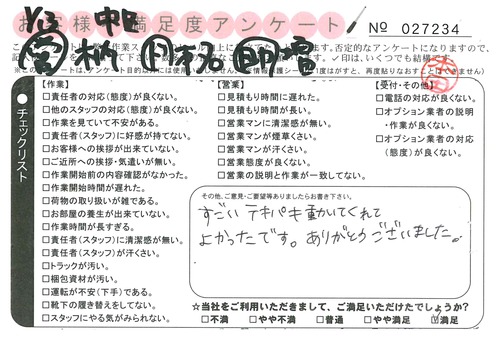 お客様 満足度アンケート
No 027234
チェックリスト
【作業】
□責任者の対応(態度)が良くない。
□他のスタッフの対応(態度)が良くない。
□作業を見ていて不安がある。
□責任者(スタッフ)に好感が持てない。
□お客様への挨拶が出来ていない。
□ご近所への挨拶・気遣いが無い。
□作業開始前の内容確認がなかった。
□作業開始時間が遅れた。
□荷物の取り扱いが雑である。
□お部屋の養生が出来ていない。
□作業時間が長すぎる。
□責任者(スタッフ)に清潔感が無い。
□責任者(スタッフ)が汗くさい。
□トラックが汚い。
□梱包資材が汚い。
□運転が不安(下手)である。
□靴下の履き替えをしてない。
□スタッフにやる気がみられない。
【営業】
□見積もり時間に遅れた。
□見積もり時間が長い。
□営業マンに清潔感が無い。
□営業マンが煙草くさい。
□営業マンが汗くさい。
□営業態度が良くない。
□営業の説明と作業が一致してない。
【受付・その他】
□電話の対応が良くない。
□オプション業者の説明
・作業が良くない。
□オプション業者の対応
(態度)が良くない。
その他、ご意見・ご要望等ありましたらお書き下さい。
すごいテキパキ動いてくれて
よかったです。ありがとうございました。
☆当社をご利用いただきまして、ご満足いただけたでしょうか?
□不満 □やや不満 □普通 □やや満足 ☑満足